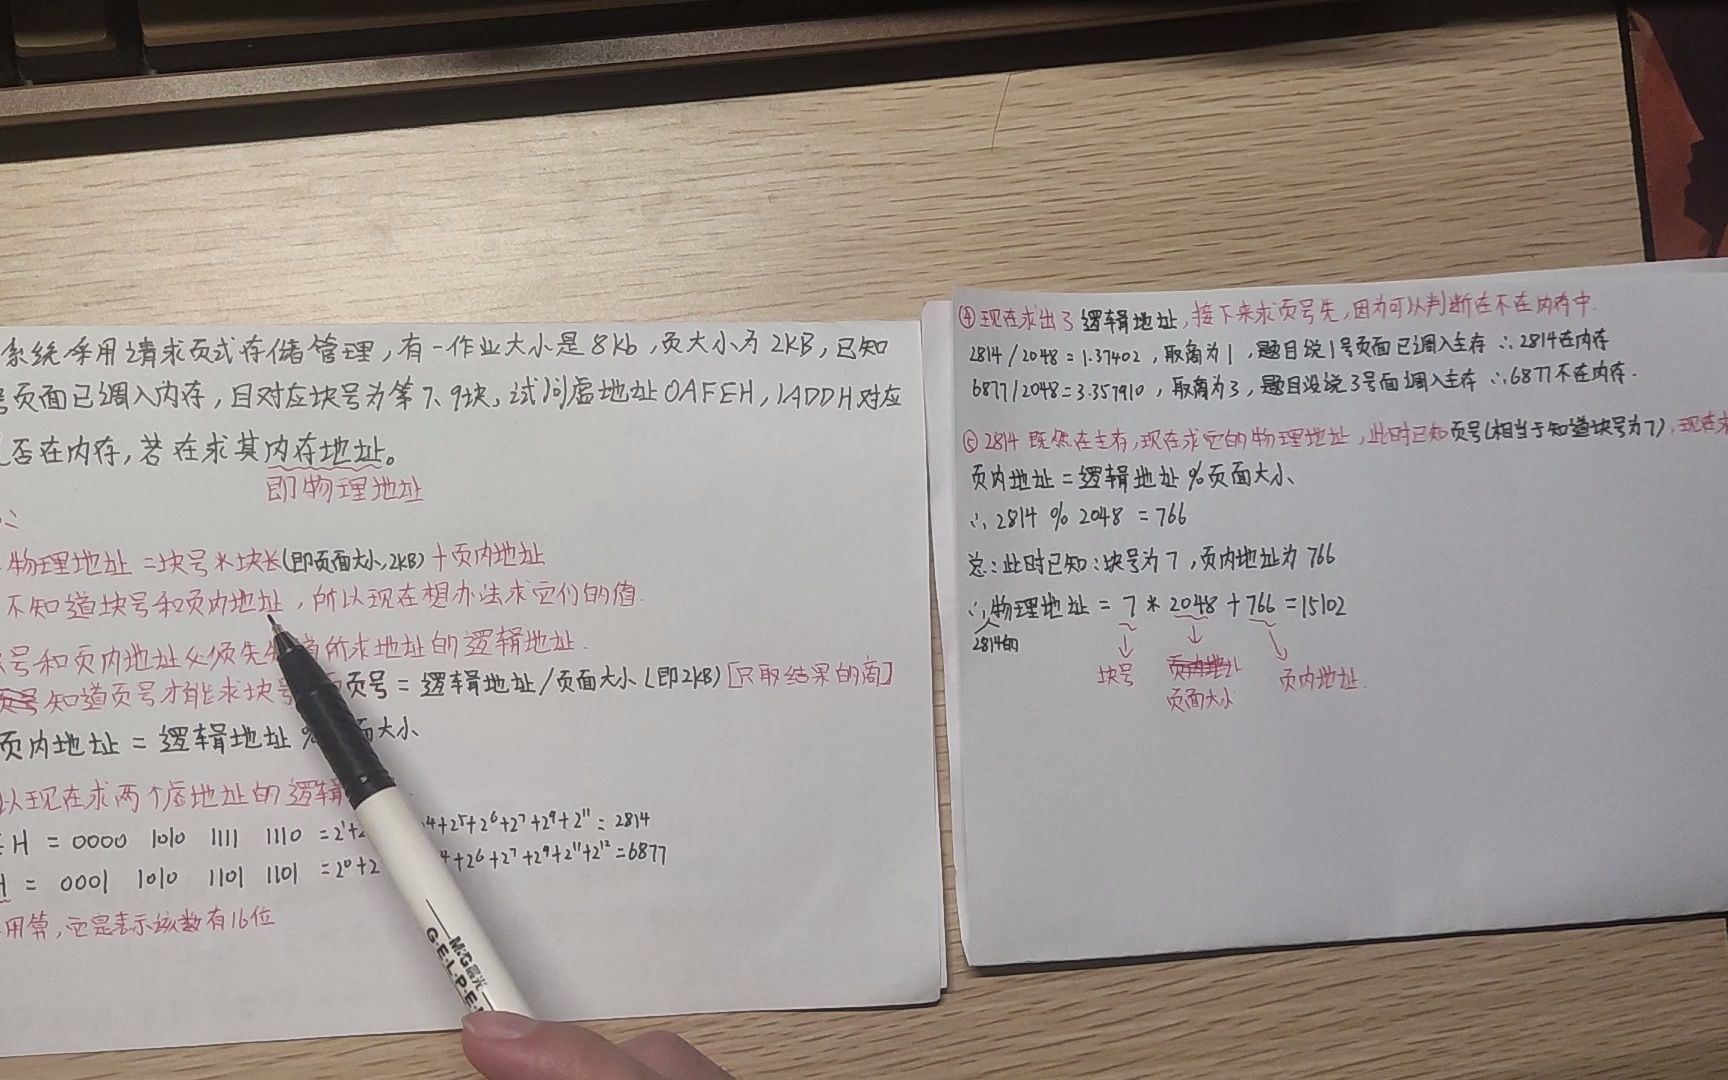 系统采用请求页式存储管理，有一作业大小是8kb，页大小为2KB，已知
号页面已调入内存，且对应块号为第7、9块，试问虚地址0AFEH，1ADDH对应
否在内存，若在求其内存地址。
即物理地址
物理地址=块号*块长(即页面大小,2KB)+页内地址
不知道块号和页内地址，所以现在想办法求它们的值.
号和页内地址必须先 所求地址的逻辑地址.
知道页号才能求块号 页号=逻辑地址/页面大小(即2KB)[只取结果的商]
页内地址=逻辑地址% 面大小
以现在求两个虚地址的逻辑
H = 0000 1010 1111 1110 =2¹+2 ⁴+2⁵+2⁶+2⁷+2⁹+2¹¹=2814
H = 0001 1010 1101 1101 =2⁰+2 ⁴+2⁶+2⁷+2⁹+2¹¹+2¹²=6877
用算,它是表示该数有16位
M&G晨光
G·E·L·P·E
④现在求出了逻辑地址,接下来求页号先,因为可以判断在不在内存中.
2814/2048=1.37402，取商为1，题目说1号页面已调入主存∴2814在内存
6877/2048=3.357910，取商为3，题目没说3号面调入主存∴6877不在内存.
⑤2814既然在主存,现在求它的物理地址,此时已知页号(相当于知道块号为7),现在求
页内地址=逻辑地址%页面大小
∴2814 % 2048 =766
总:此时已知:块号为7,页内地址为766
∴物理地址=7*2048+766=15102
2814的
块号 页内地址 页内地址.
页面大小